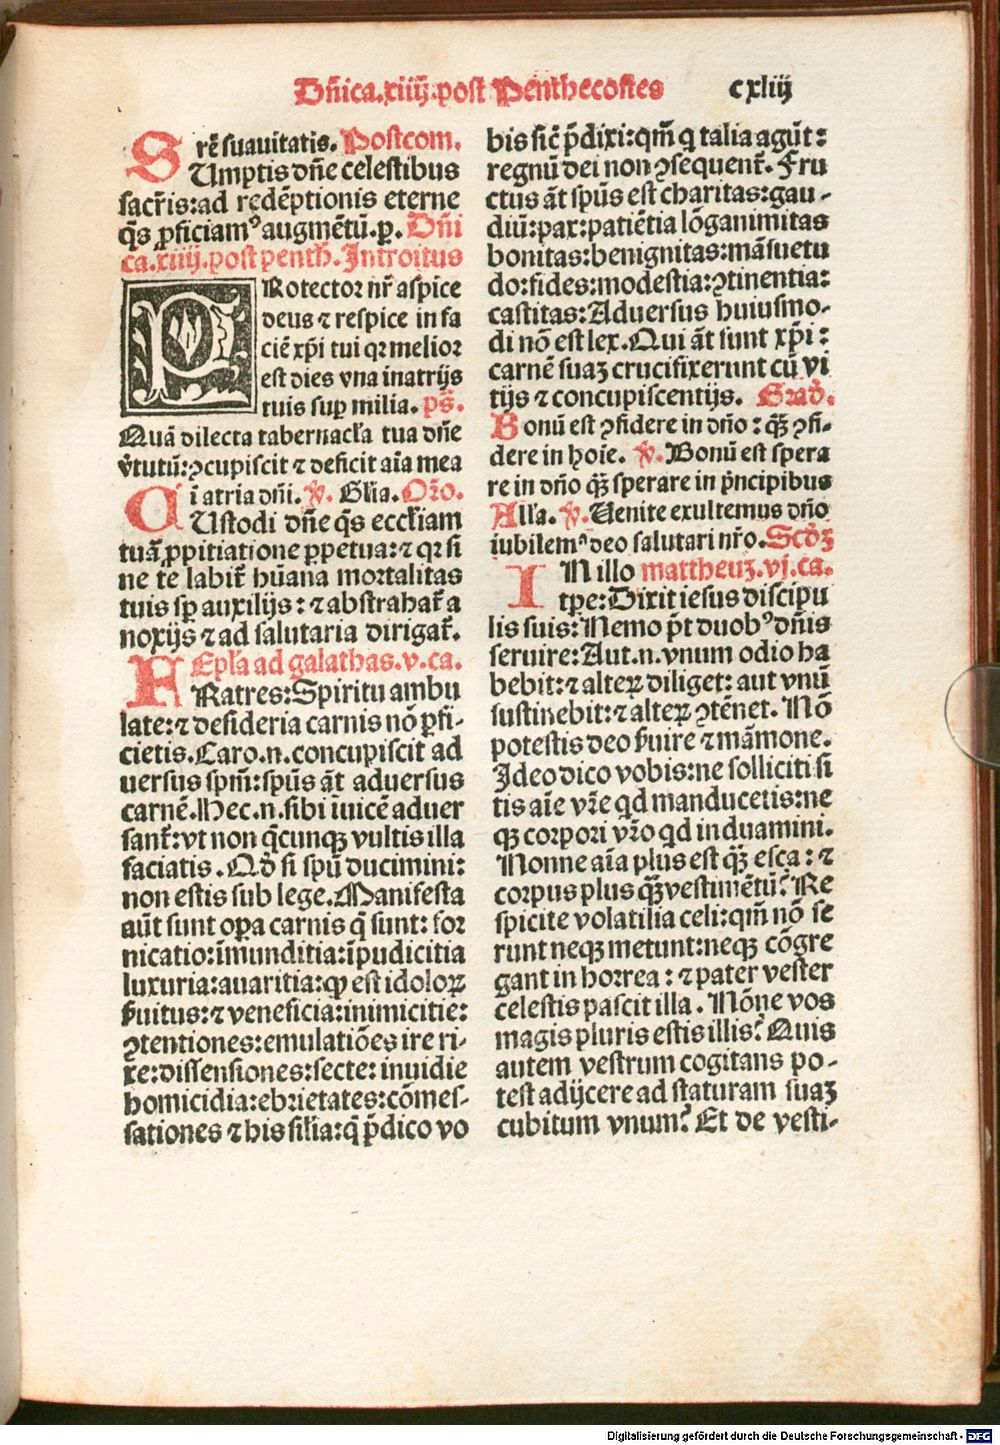 Dñica.xiiij.post Penthecostes cxliij
rẽ suauitatis. Postcom.
SUmptis dñe celestibus
sacr̃is:ad redẽptionis eterne
q̃s ꝓficiamꝰ augmẽtũ.p. Dñi
ca.xiiij.post penth̃. Introitus
PRotector nr̃ aspice
deus ⁊ respice in fa
ciẽ xp̃i tui qꝛ melioꝛ
est dies vna in atrijs
tuis suꝑ milia. ps̃.
Quã dilecta tabernacl̃a tua dñe
v̓tutũ:ꝯcupiscit ⁊ deficit aĩa mea
ĩ atria dñi. ℣. Glĩa. Oꝛo.
CUstodi dñe q̃s eccl̃iam
tuã ꝓpitiatione ꝑpetua:⁊ qꝛ si
ne te labit̃ hũana moꝛtalitas
tuis sꝑ auxilijs:⁊ abstrahat̃ a
noxijs ⁊ ad salutaria dirigat̃.
Ep̃la ad galathas.v.ca.
FRatres:Spiritu ambu
late:⁊ desideria carnis nõ ꝑfi-
cietis.Caro.n.concupiscit ad
uersus spm̃:spũs ãt aduersus
carnẽ.Hec.n.sibi ĩuicẽ aduer
sant̃:vt non q̃cunqꝫ vultis illa
faciatis.Qd̓ si spũ ducimini:
non estis sub lege.Manifesta
aũt sunt oꝑa carnis q̃ sunt: foꝛ
nicatio:ĩmunditia:ĩpudicitia
luxuria:auaritia:qꝫ est idoloꝝ
ẜuitus:⁊ veneficia:inimicitie:
ꝯtentiones:emulatiões ire ri-
xe:dissensiones:secte:inuidie
homicidia:ebꝛietates:cõmes-
sationes ⁊ his silĩa:q̃ p̃dico vo
bis sic̃ p̃dixi:qm̃ q talia agũt:
regnũ dei non ꝯsequent̃. Fru
ctus ãt spũs est charitas:gau-
diũ:pax:patiẽtia lõganimitas
bonitas:benignitas:mãsuetu
do:fides:modestia:ꝯtinentia:
castitas:Aduersus huiusmo-
di nõ est lex.Qui ãt sunt xp̃i:
carnẽ suaꝫ crucifixerunt cũ vi
tijs ⁊ concupiscentijs. Grad̓.
Bonũ est ꝯfidere in dño:qꝫ̃ ꝯfi-
dere in hoĩe. ℣. Bonũ est spera
re in dño qꝫ̃ sperare in pͥncipibus
All̃a. ℣. Venite exultemus dño
iubilemꝰ deo salutari nr̃o.Scd̓ꝫ
mattheuꝫ.vj.ca.
IN illo
tꝑe:Dixit iesus discipu
lis suis:Nemo p̃t duobꝰ dñis
seruire:Aut.n.vnum odio ha
bebit:⁊ alteꝝ diliget: aut vnũ
sustinebit:⁊ alteꝝ ꝯtẽnet. Nõ
potestis deo ẜuire ⁊ mãmone.
Ideo dico vobis:ne solliciti si
tis aĩe vr̃e qd manducetis:ne
qꝫ coꝛpoꝛi vr̃o qd induamini.
Nonne aĩa plus est qꝫ̃ esca: ⁊
coꝛpus plus qꝫ̃ vestimẽtũ? Re
spicite volatilia celi:qm̃ nõ se
runt neqꝫ metunt:neqꝫ cõgre
gant in hoꝛrea: ⁊ pater vester
celestis pascit illa. Nõne vos
magis pluris estis illis? Quis
autem vestrum cogitans po-
test adijcere ad staturam suaꝫ
cubitum vnum? Et de vesti-
Digitalisierung gefördert durch die Deutsche Forschungsgemeinschaft - DFG